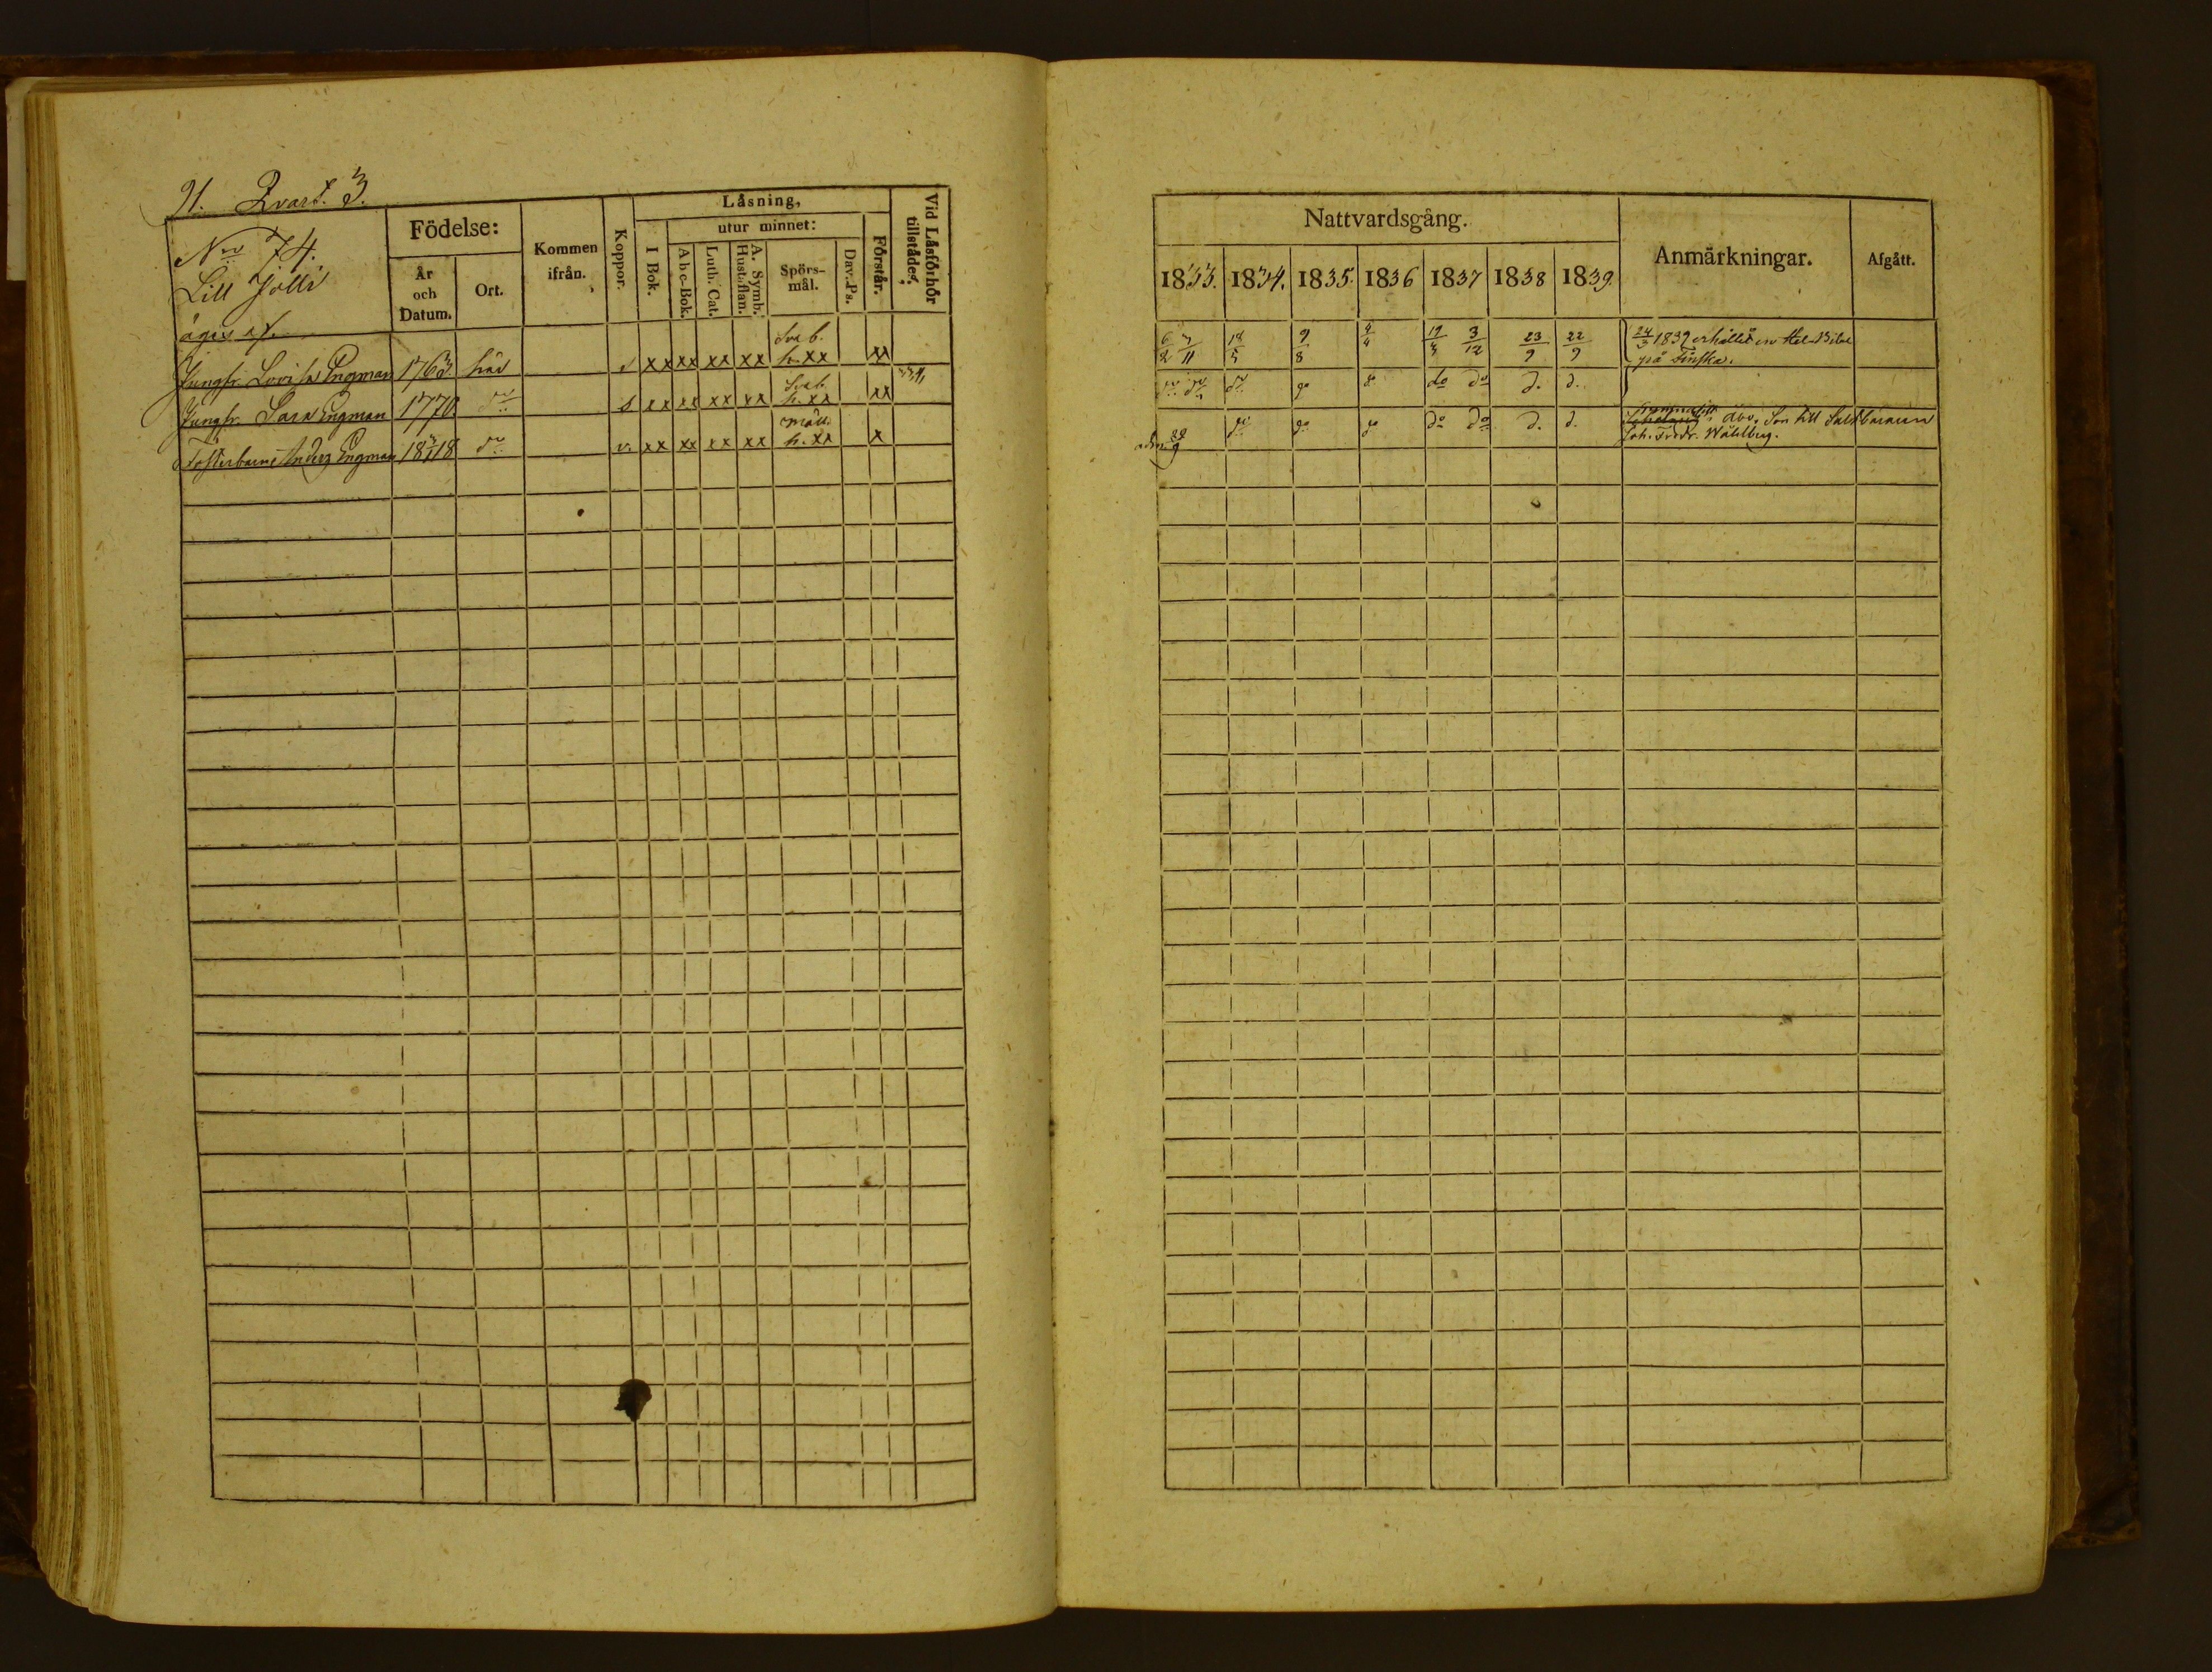 91. Qvart. 3.
No 74.
Lill Jolli
äges af.
Födelse:
År och Datum.
Ort.
Kommen ifrån.
Koppor.
Låsning,
I Bok.
utur minnet:
Abc-Bok.
Luth. Cat.
A. Symb. Hust.flan.
Spörs-mål.
Dav.Ps.
Förstår.
Vid Låsförhör tillstådes,
Jungfr. Lovisa Engman 1763. här s xx xx xx xx Sv. b. h. xx xx
Jungfr. Sara Engman 1770 do s xx xx xx xx Sv. b. h. xx xx
Fosterbarnet Anders Engman 1818 do v. xx xx xx xx h. xx x
Nattvardsgång.
Anmärkningar.
Afgått.
1833. 1834. 1835. 1836 1837 1838 1839.
6/2 11 18/5 9/8 4/4 19/3 3/12 23/9 22/9 24/5 1839 erhållit en Hel Bibel
på Finska.
do do do do do do do d. d.
adm. 29/9 do do do do do d. d. Åbo. Son till
Joh. Fredr. Wahlberg.